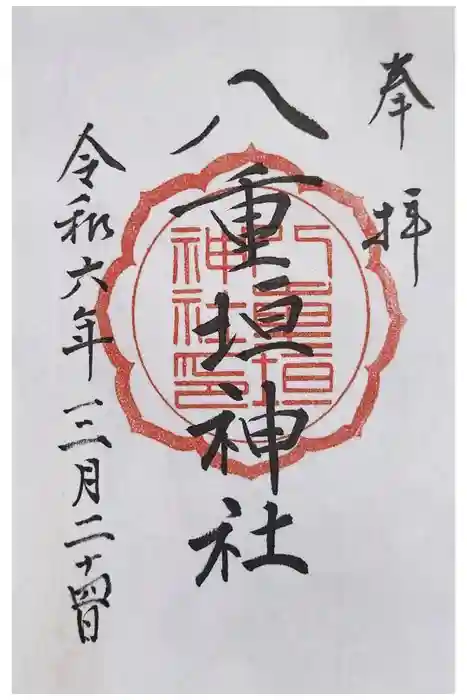 奉拝
八重垣神社
八重垣神社印
令和六年三月二十四日